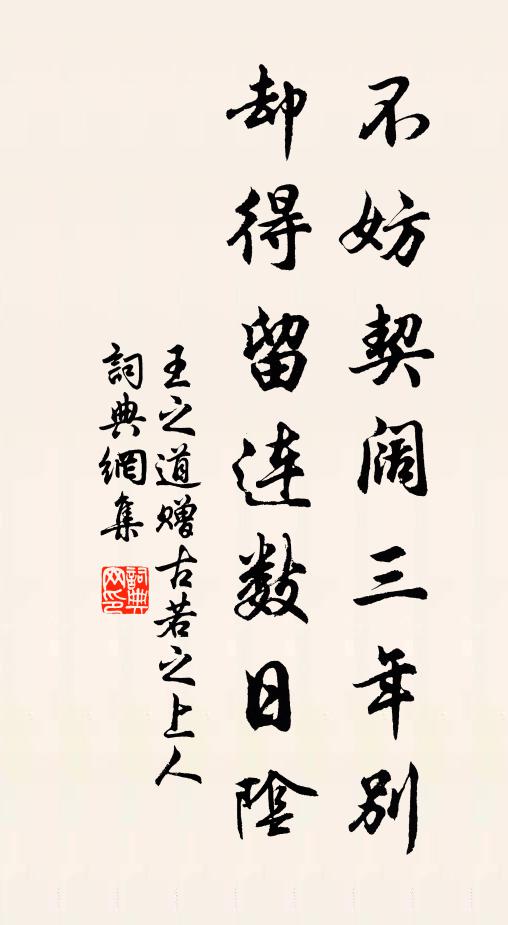 不妨契阔三年别
却得留连数日陰
王之道赠古若之上人
詞典網集
詞典網印